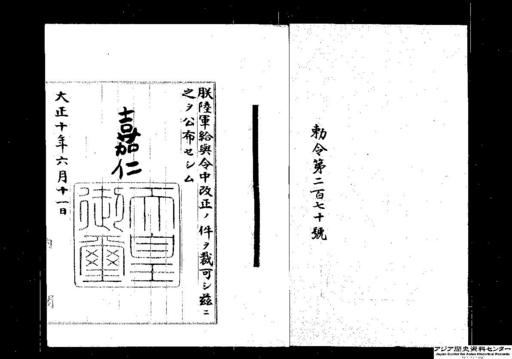 勅令第二百七十號
朕陸軍給與令中改正ノ件ヲ裁可シ茲ニ
之ヲ公布セシム
嘉仁
天皇御璽
大正十年六月十一日
内閣
アジア歴史資料センター
Japan Center for Asian Historical Records